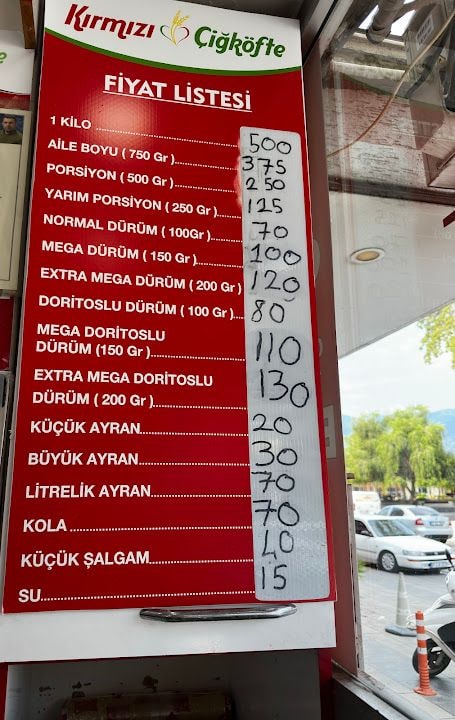 Kırmızı Çiğköfte
FİYAT LİSTESİ
1 KİLO 500
AİLE BOYU ( 750 Gr ) 375
PORSİYON ( 500 Gr ) 250
YARIM PORSİYON ( 250 Gr ) 125
NORMAL DÜRÜM ( 100Gr ) 70
MEGA DÜRÜM ( 150 Gr ) 100
EXTRA MEGA DÜRÜM ( 200 Gr ) 120
DORİTOSLU DÜRÜM ( 100 Gr ) 80
MEGA DORİTOSLU
DÜRÜM (150 Gr ) 110
EXTRA MEGA DORİTOSLU
DÜRÜM ( 200 Gr ) 130
KÜÇÜK AYRAN 20
BÜYÜK AYRAN 30
LİTRELİK AYRAN 70
KOLA 70
KÜÇÜK ŞALGAM 40
SU 15